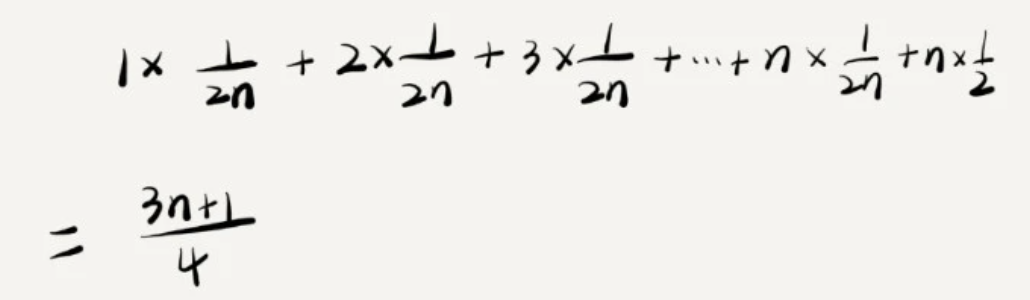 1 × 1/2n + 2 × 1/2n + 3 × 1/2n + ⋯ + n × 1/2n + n × 1/2
= 3n+1/4